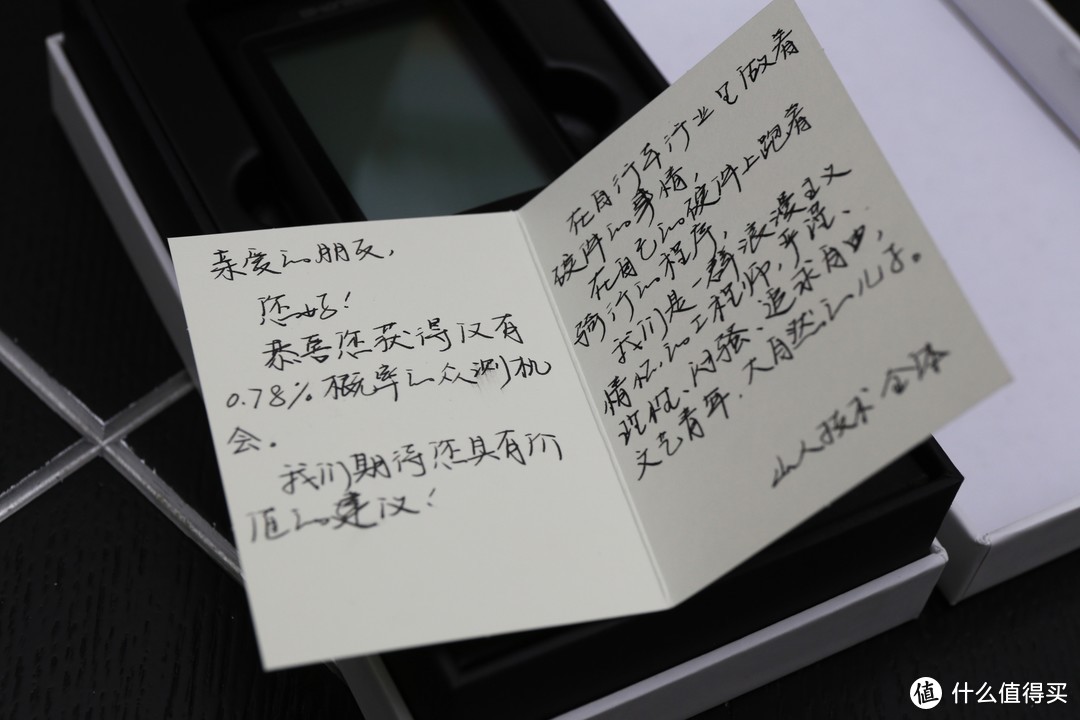 亲爱的朋友,
您好!
恭喜您获得仅有
0.78%概率的众测机
会。
我们期待您具有价
值的建议!
在自行车行业里做着
硬件的事情,
在自己的硬件上跑着
骑行的程序,
我们是一群浪漫主义
情怀的工程师,乎理、
理性、闷骚、追求自由,
文艺青年.大自然的儿子。
山人技术 全体
值 什么值得买